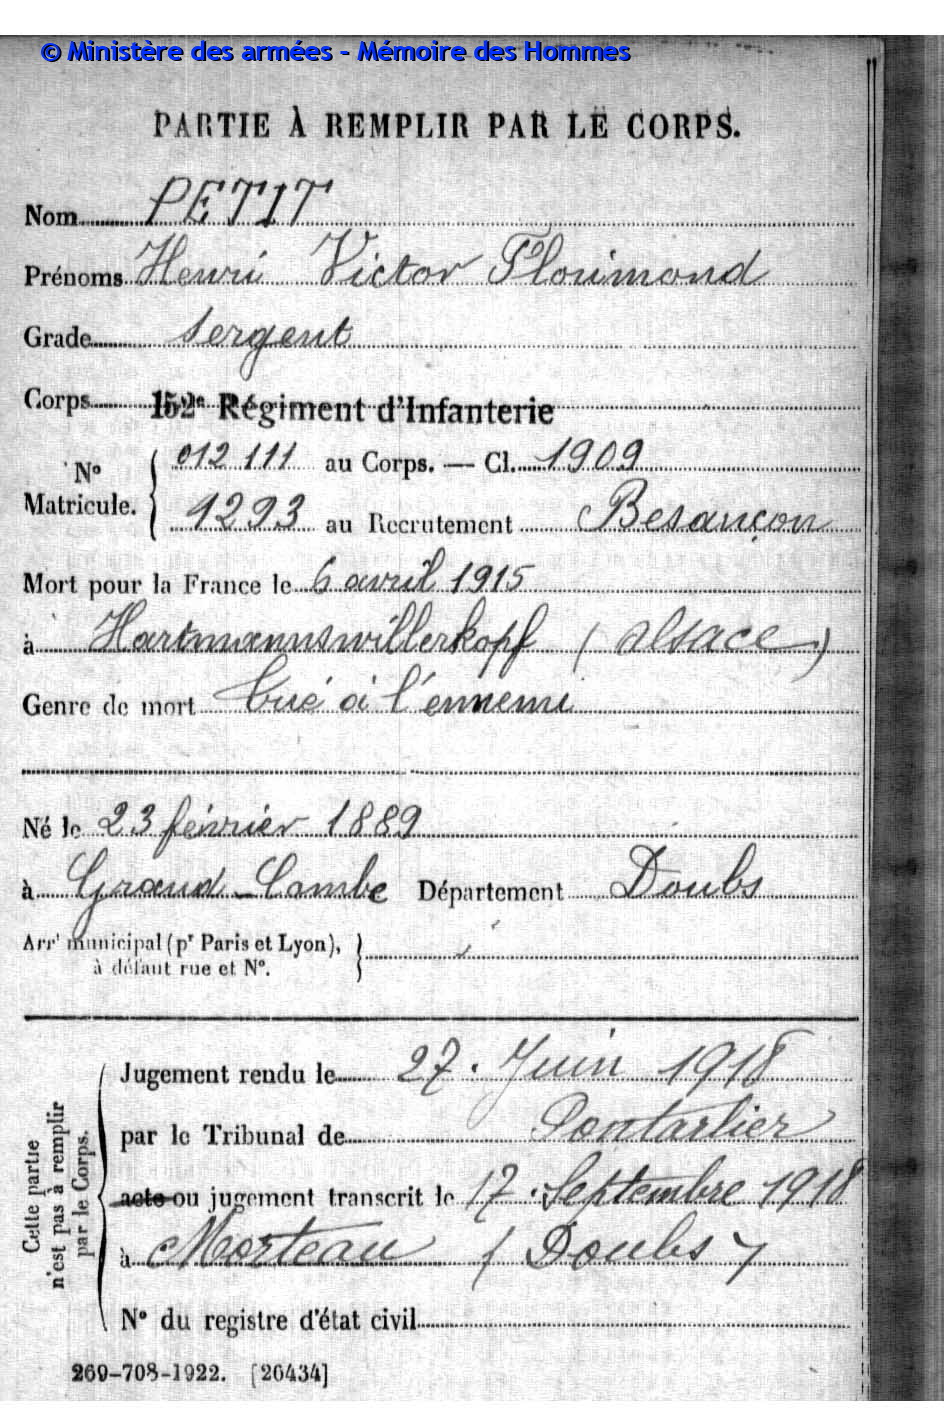 © Ministère des armées - Mémoire des Hommes
PARTIE À REMPLIR PAR LE CORPS.
Nom PETIT
Prénoms Henri Victor Florimond
Grade Sergent
Corps 152e Régiment d'Infanterie
N° Matricule. { 012 111 au Corps. — Cl. 1909
1293 au Recrutement Besançon
Mort pour la France le 6 avril 1915
à Hartmannswillerkopf (Alsace)
Genre de mort Tué à l'ennemi
Né le 23 février 1889
à Grand-Combe Département Doubs
Arrt municipal (pr Paris et Lyon), à défaut rue et N°. }
Cette partie n'est pas à remplir par le Corps.
Jugement rendu le 27 Juin 1918
par le Tribunal de Pontarlier
acte ou jugement transcrit le 17 Septembre 1918
à Morteau (Doubs)
N° du registre d'état civil
269-708-1922. [26434]